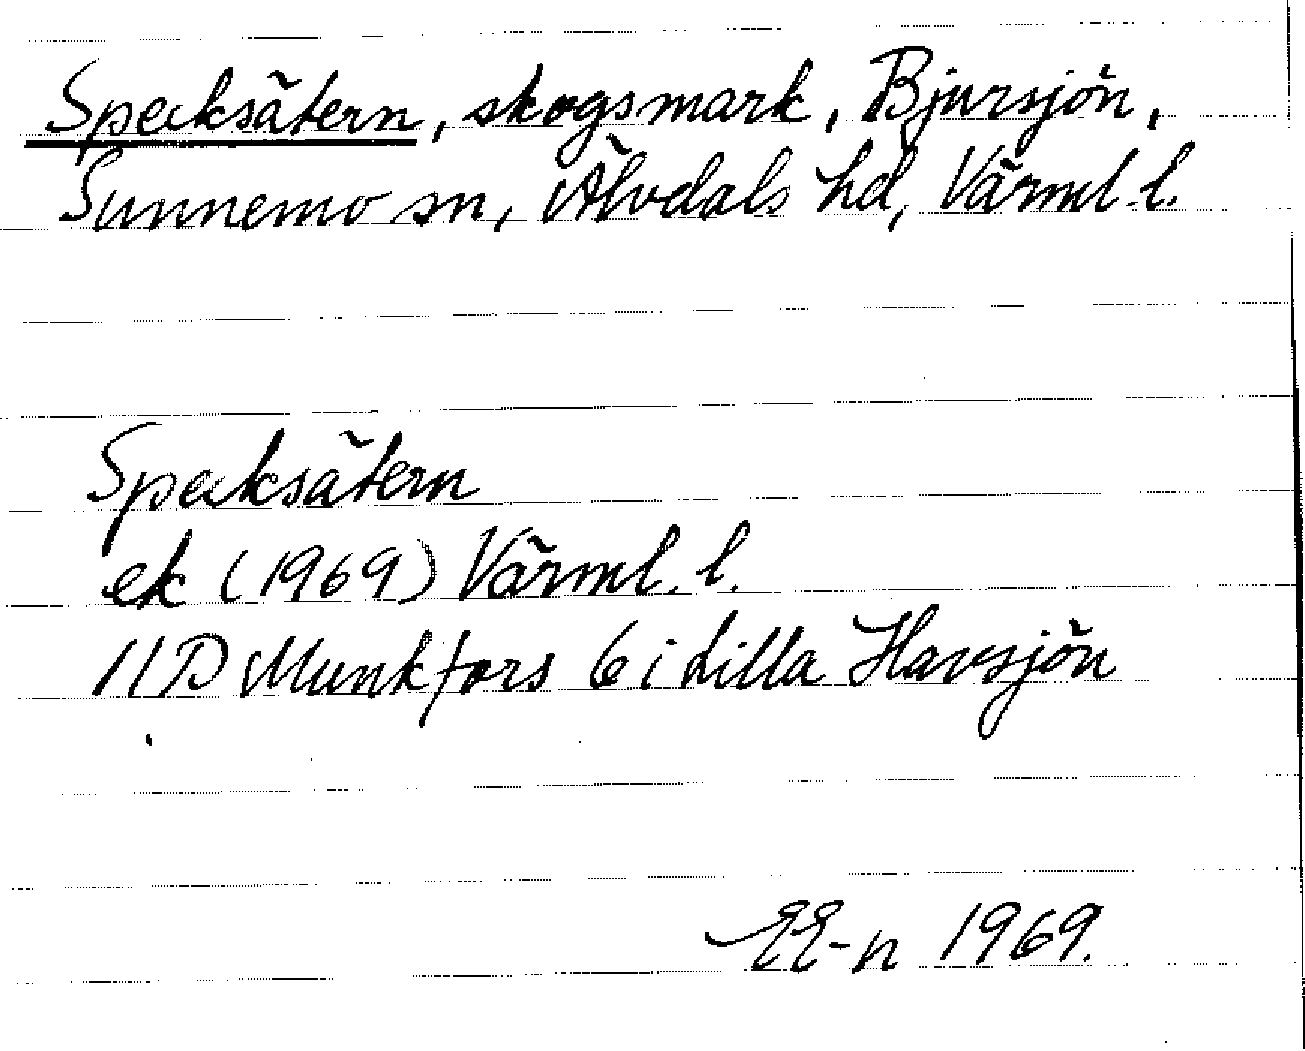 Specksätern, skogsmark, Bjursjön,
Sunnemo sn, Älvdals hd, Värml. l.
Specksätern
ek (1969) Värml. l.
11D Munkfors 6 i Lilla Havsjön
EE-n 1969.